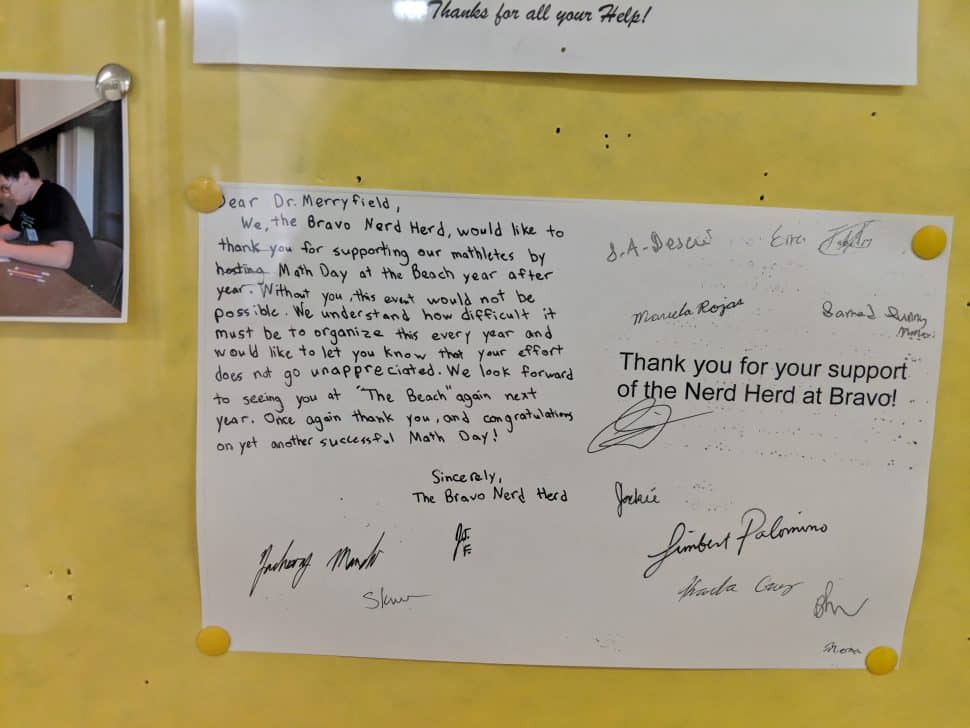 Thanks for all your Help!
Dear Dr. Merryfield,
We, the Bravo Nerd Herd, would like to
thank you for supporting our mathletes by
hosting Math Day at the Beach year after
year. Without you, this event would not be
possible. We understand how difficult it
must be to organize this every year and
would like to let you know that your effort
does not go unappreciated. We look forward
to seeing you at "The Beach" again next
year. Once again thank you, and congratulations
on yet another successful Math Day!
Sincerely,
The Bravo Nerd Herd
Mariela Rojas
Thank you for your support
of the Nerd Herd at Bravo!
Jackie
Limbert Palomino
Karla Cruz